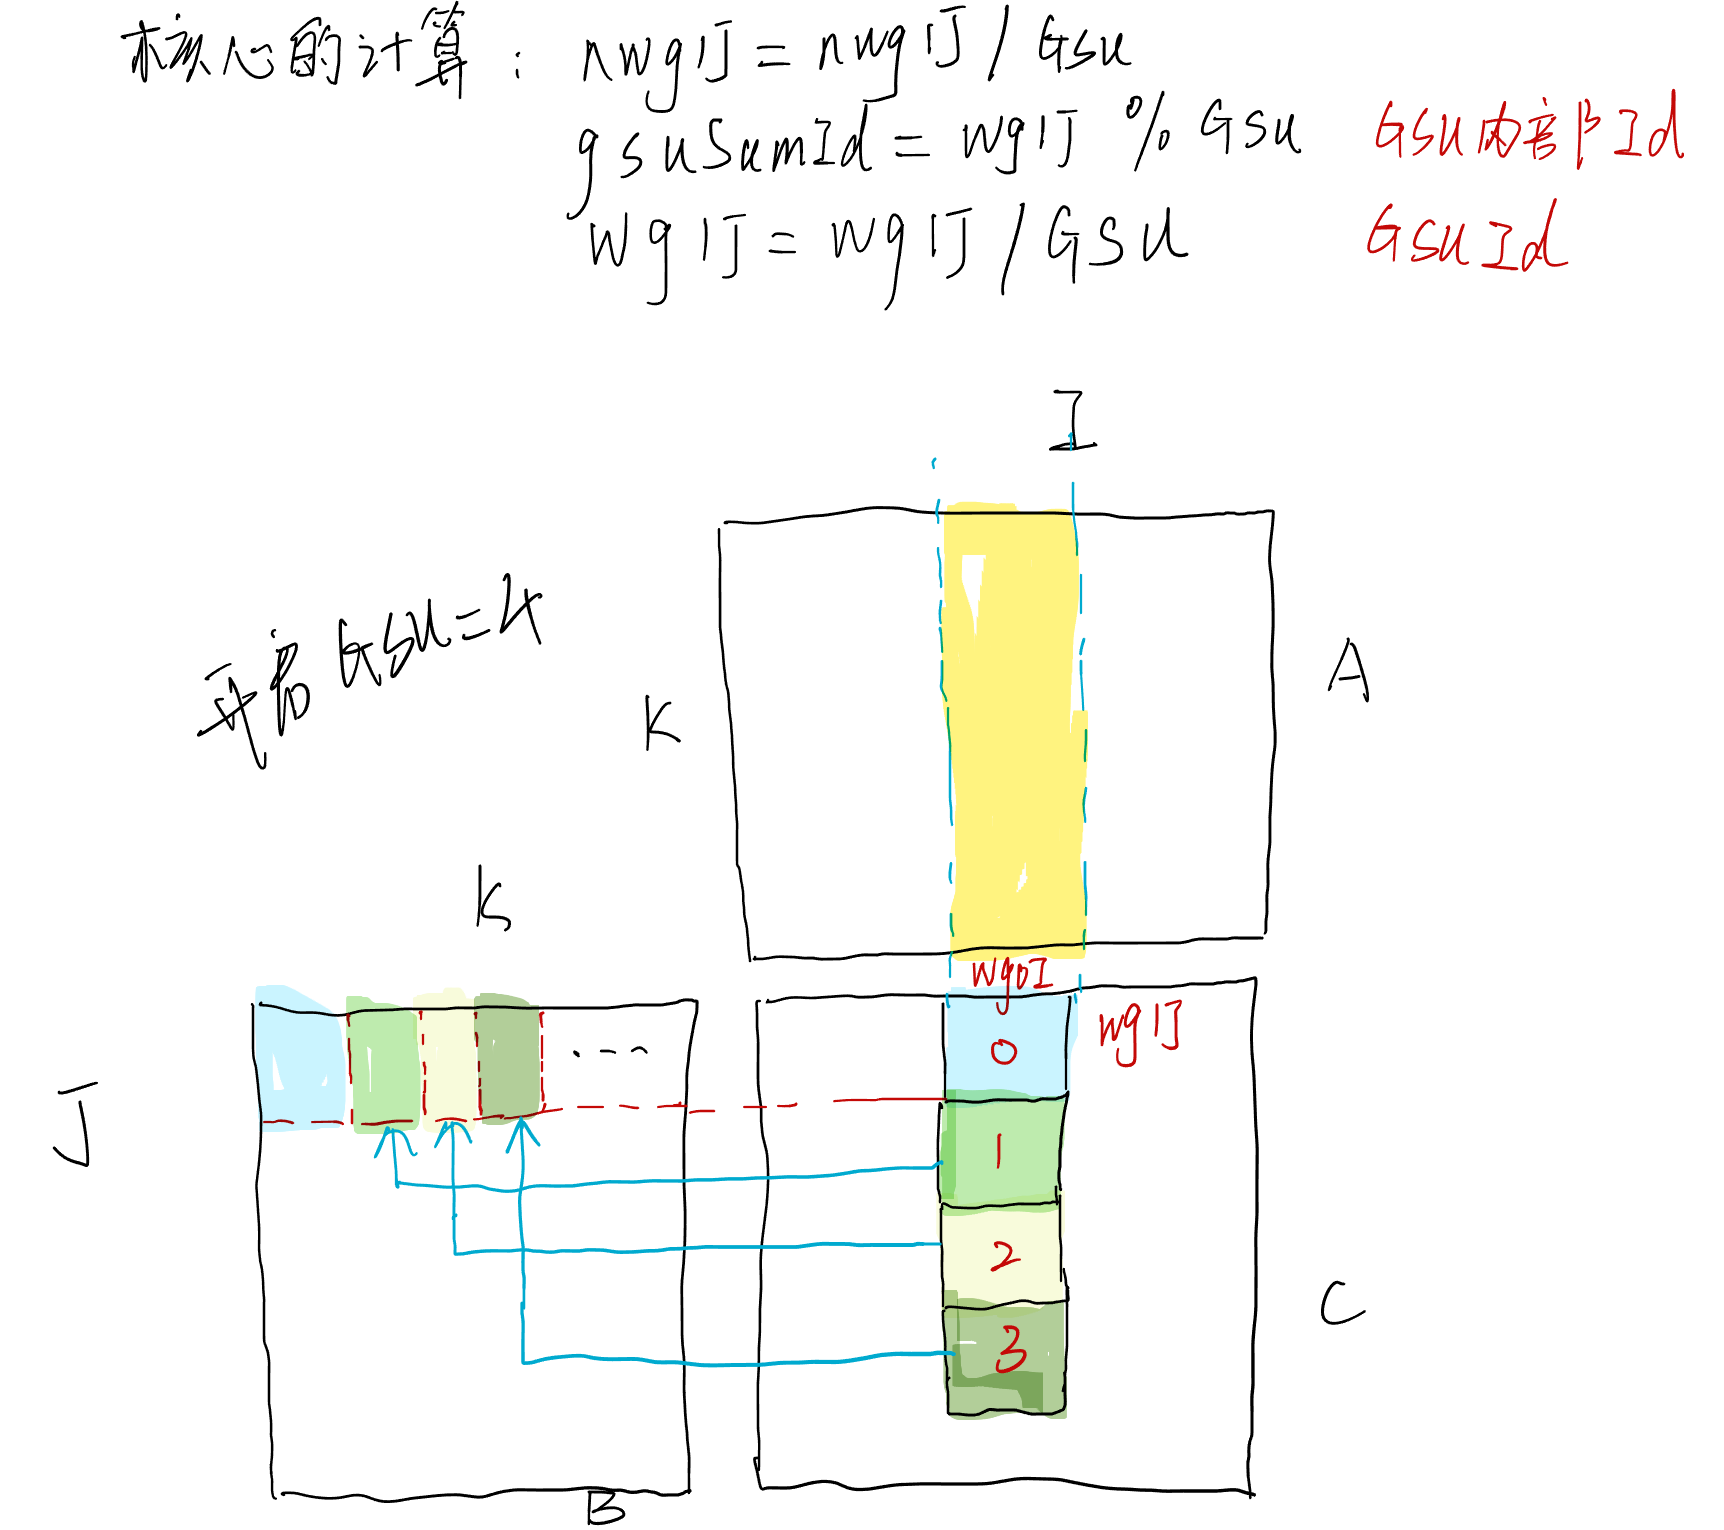 核心的计算: nwg1J = nwg1J / Gsu
gsuSumId = wg1J % Gsu GSU内部Id
wg1J = wg1J / GSU GSUId
I
开启GSU=4
A
K
K
wg0I
wg1J
0
...
J
1
2
C
3
B